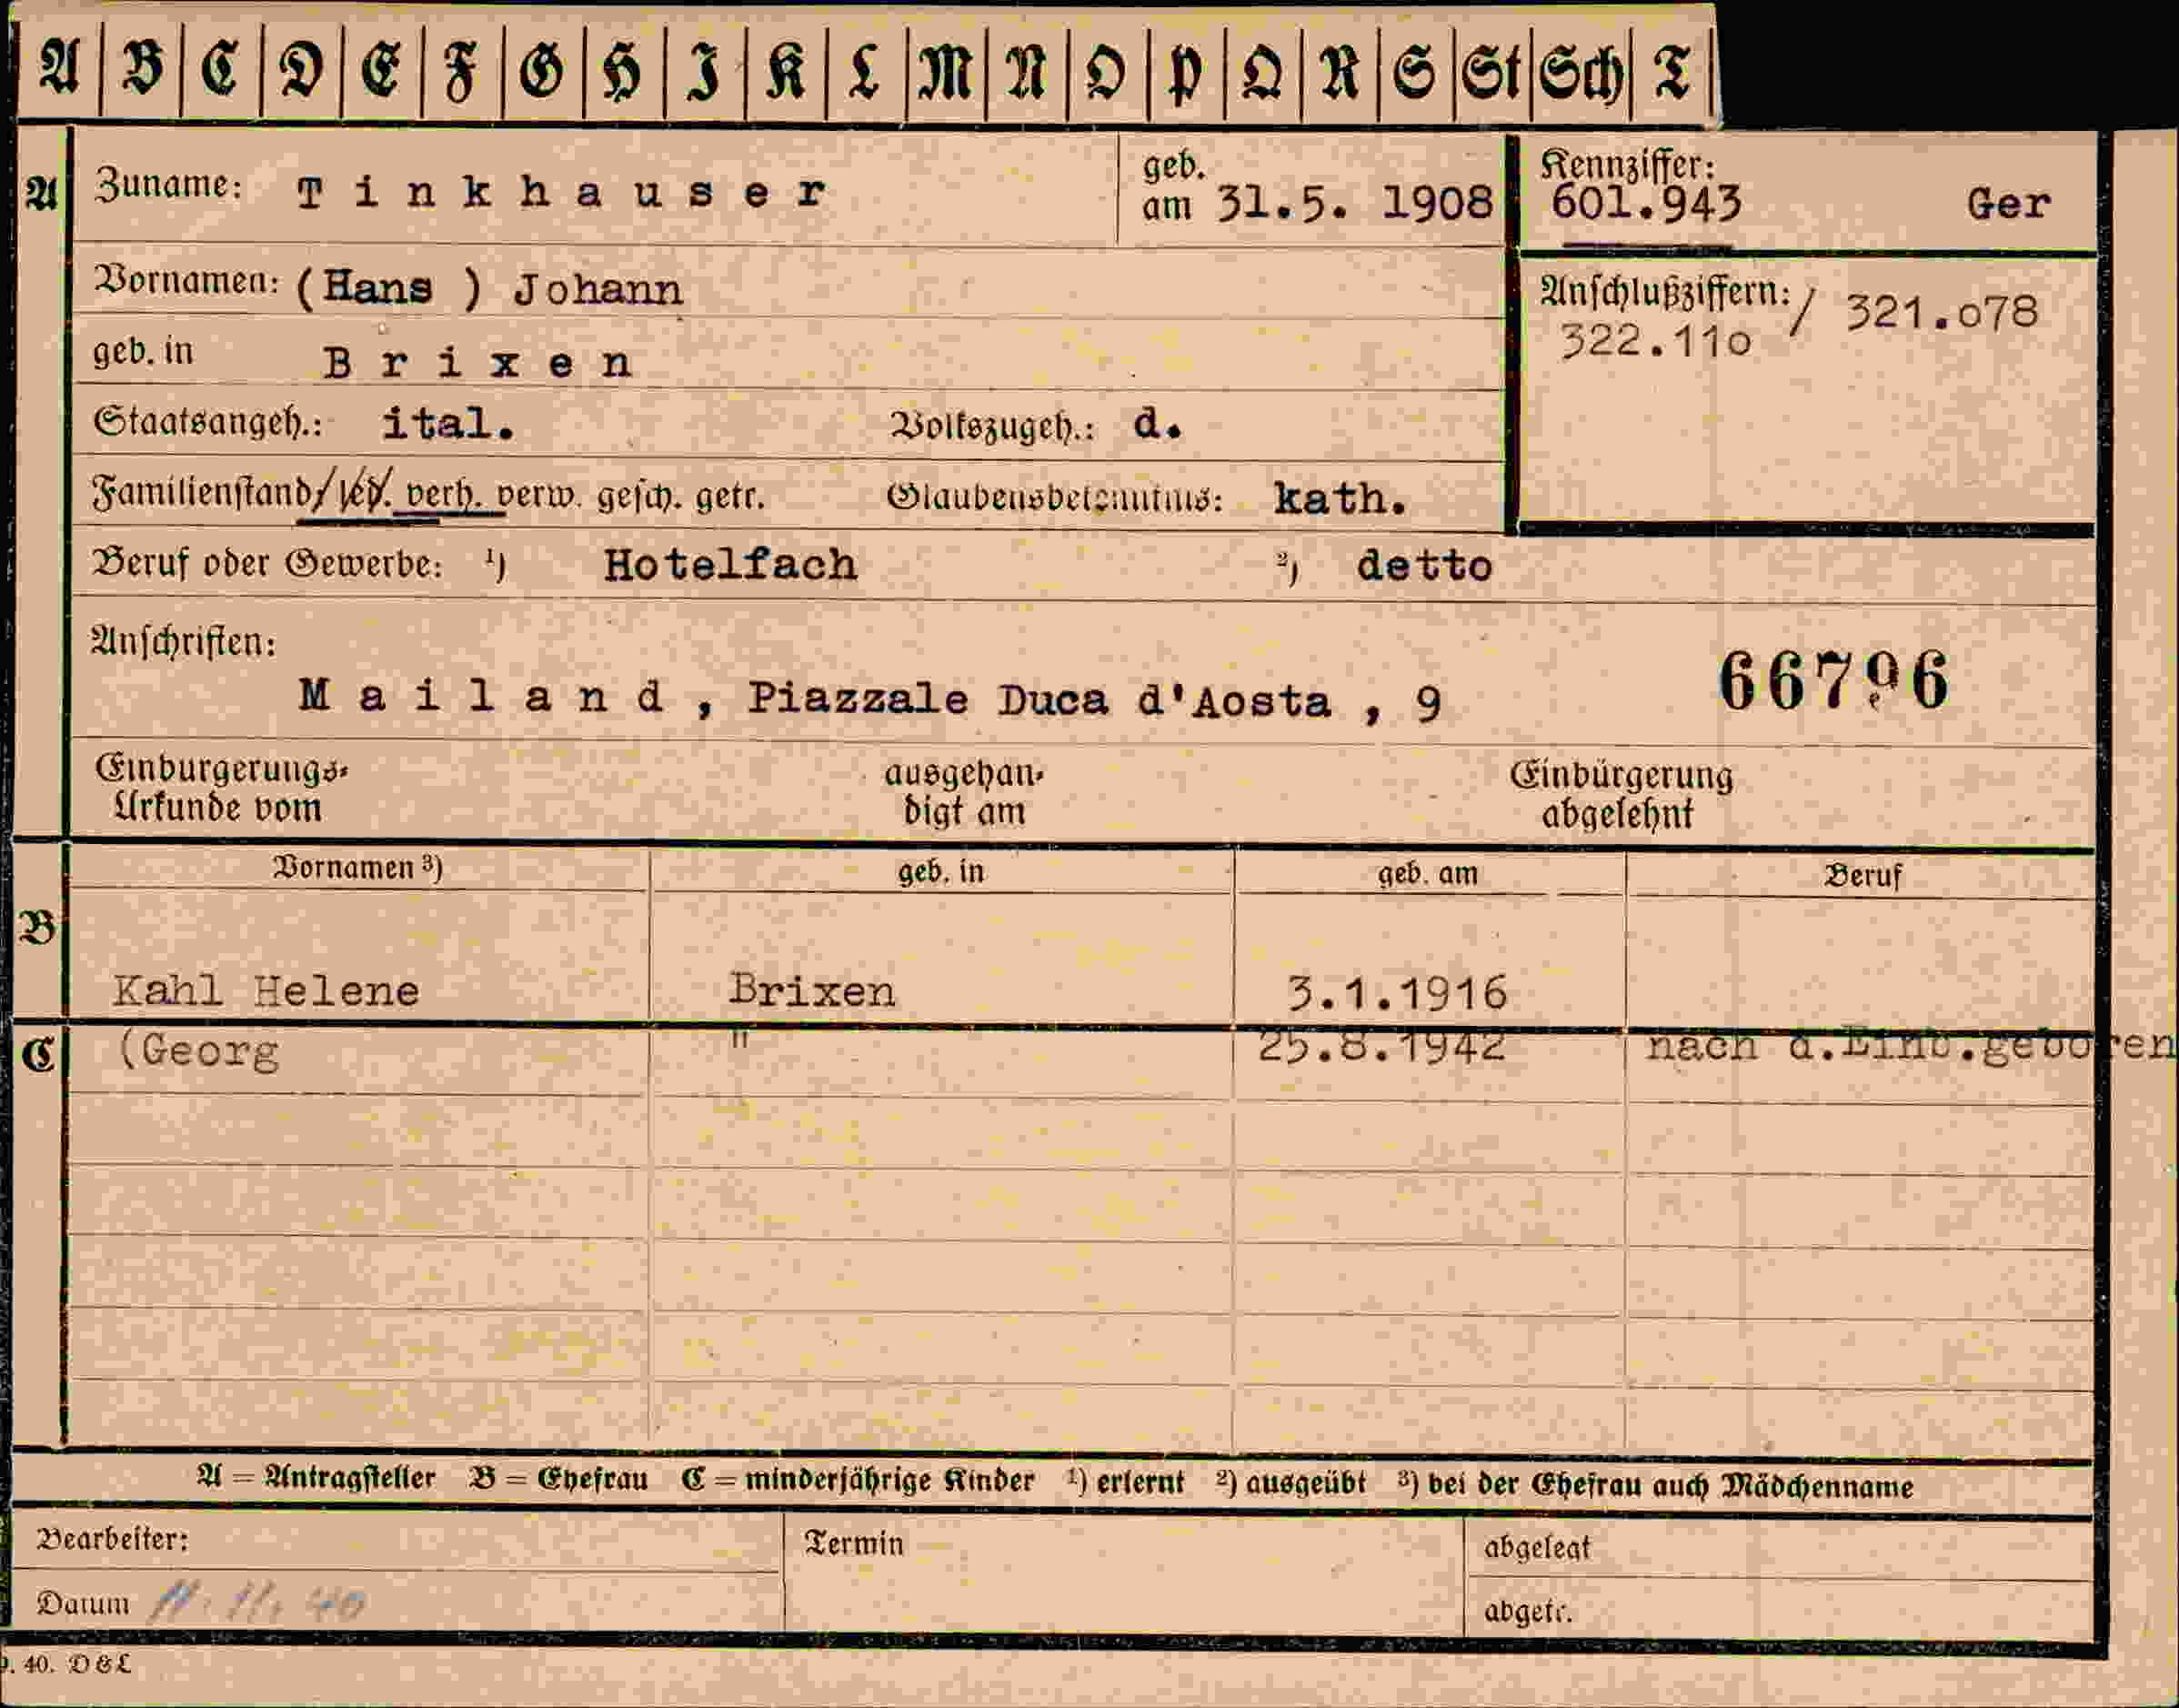 A B C D E F G H I K L M N O P Q R S St Sch T
A Zuname: Tinkhauser geb. am 31.5. 1908 Kennziffer: 601.943 Ger
Vornamen: (Hans ) Johann Anschlußziffern: / 321.o78
322.11o
geb. in Brixen
Staatsangeh.: ital. Volkszugeh.: d.
Familienstand/led. verh. verw. gesch. getr. Glaubensbekenntnis: kath.
Beruf oder Gewerbe: ¹) Hotelfach ²) detto
Anschriften:
Mailand, Piazzale Duca d'Aosta , 9 66796
Einbürgerungs- ausgehän- Einbürgerung
Urkunde vom digt am abgelehnt
Vornamen ³) geb. in geb. am Beruf
B
Kahl Helene Brixen 3.1.1916
C (Georg " 25.8.1942 nach d.Einb.geboren
A = Antragsteller B = Ehefrau C = minderjährige Kinder ¹) erlernt ²) ausgeübt ³) bei der Ehefrau auch Mädchenname
Bearbeiter: Termin abgelegt
Datum abgetr.
40. D & L